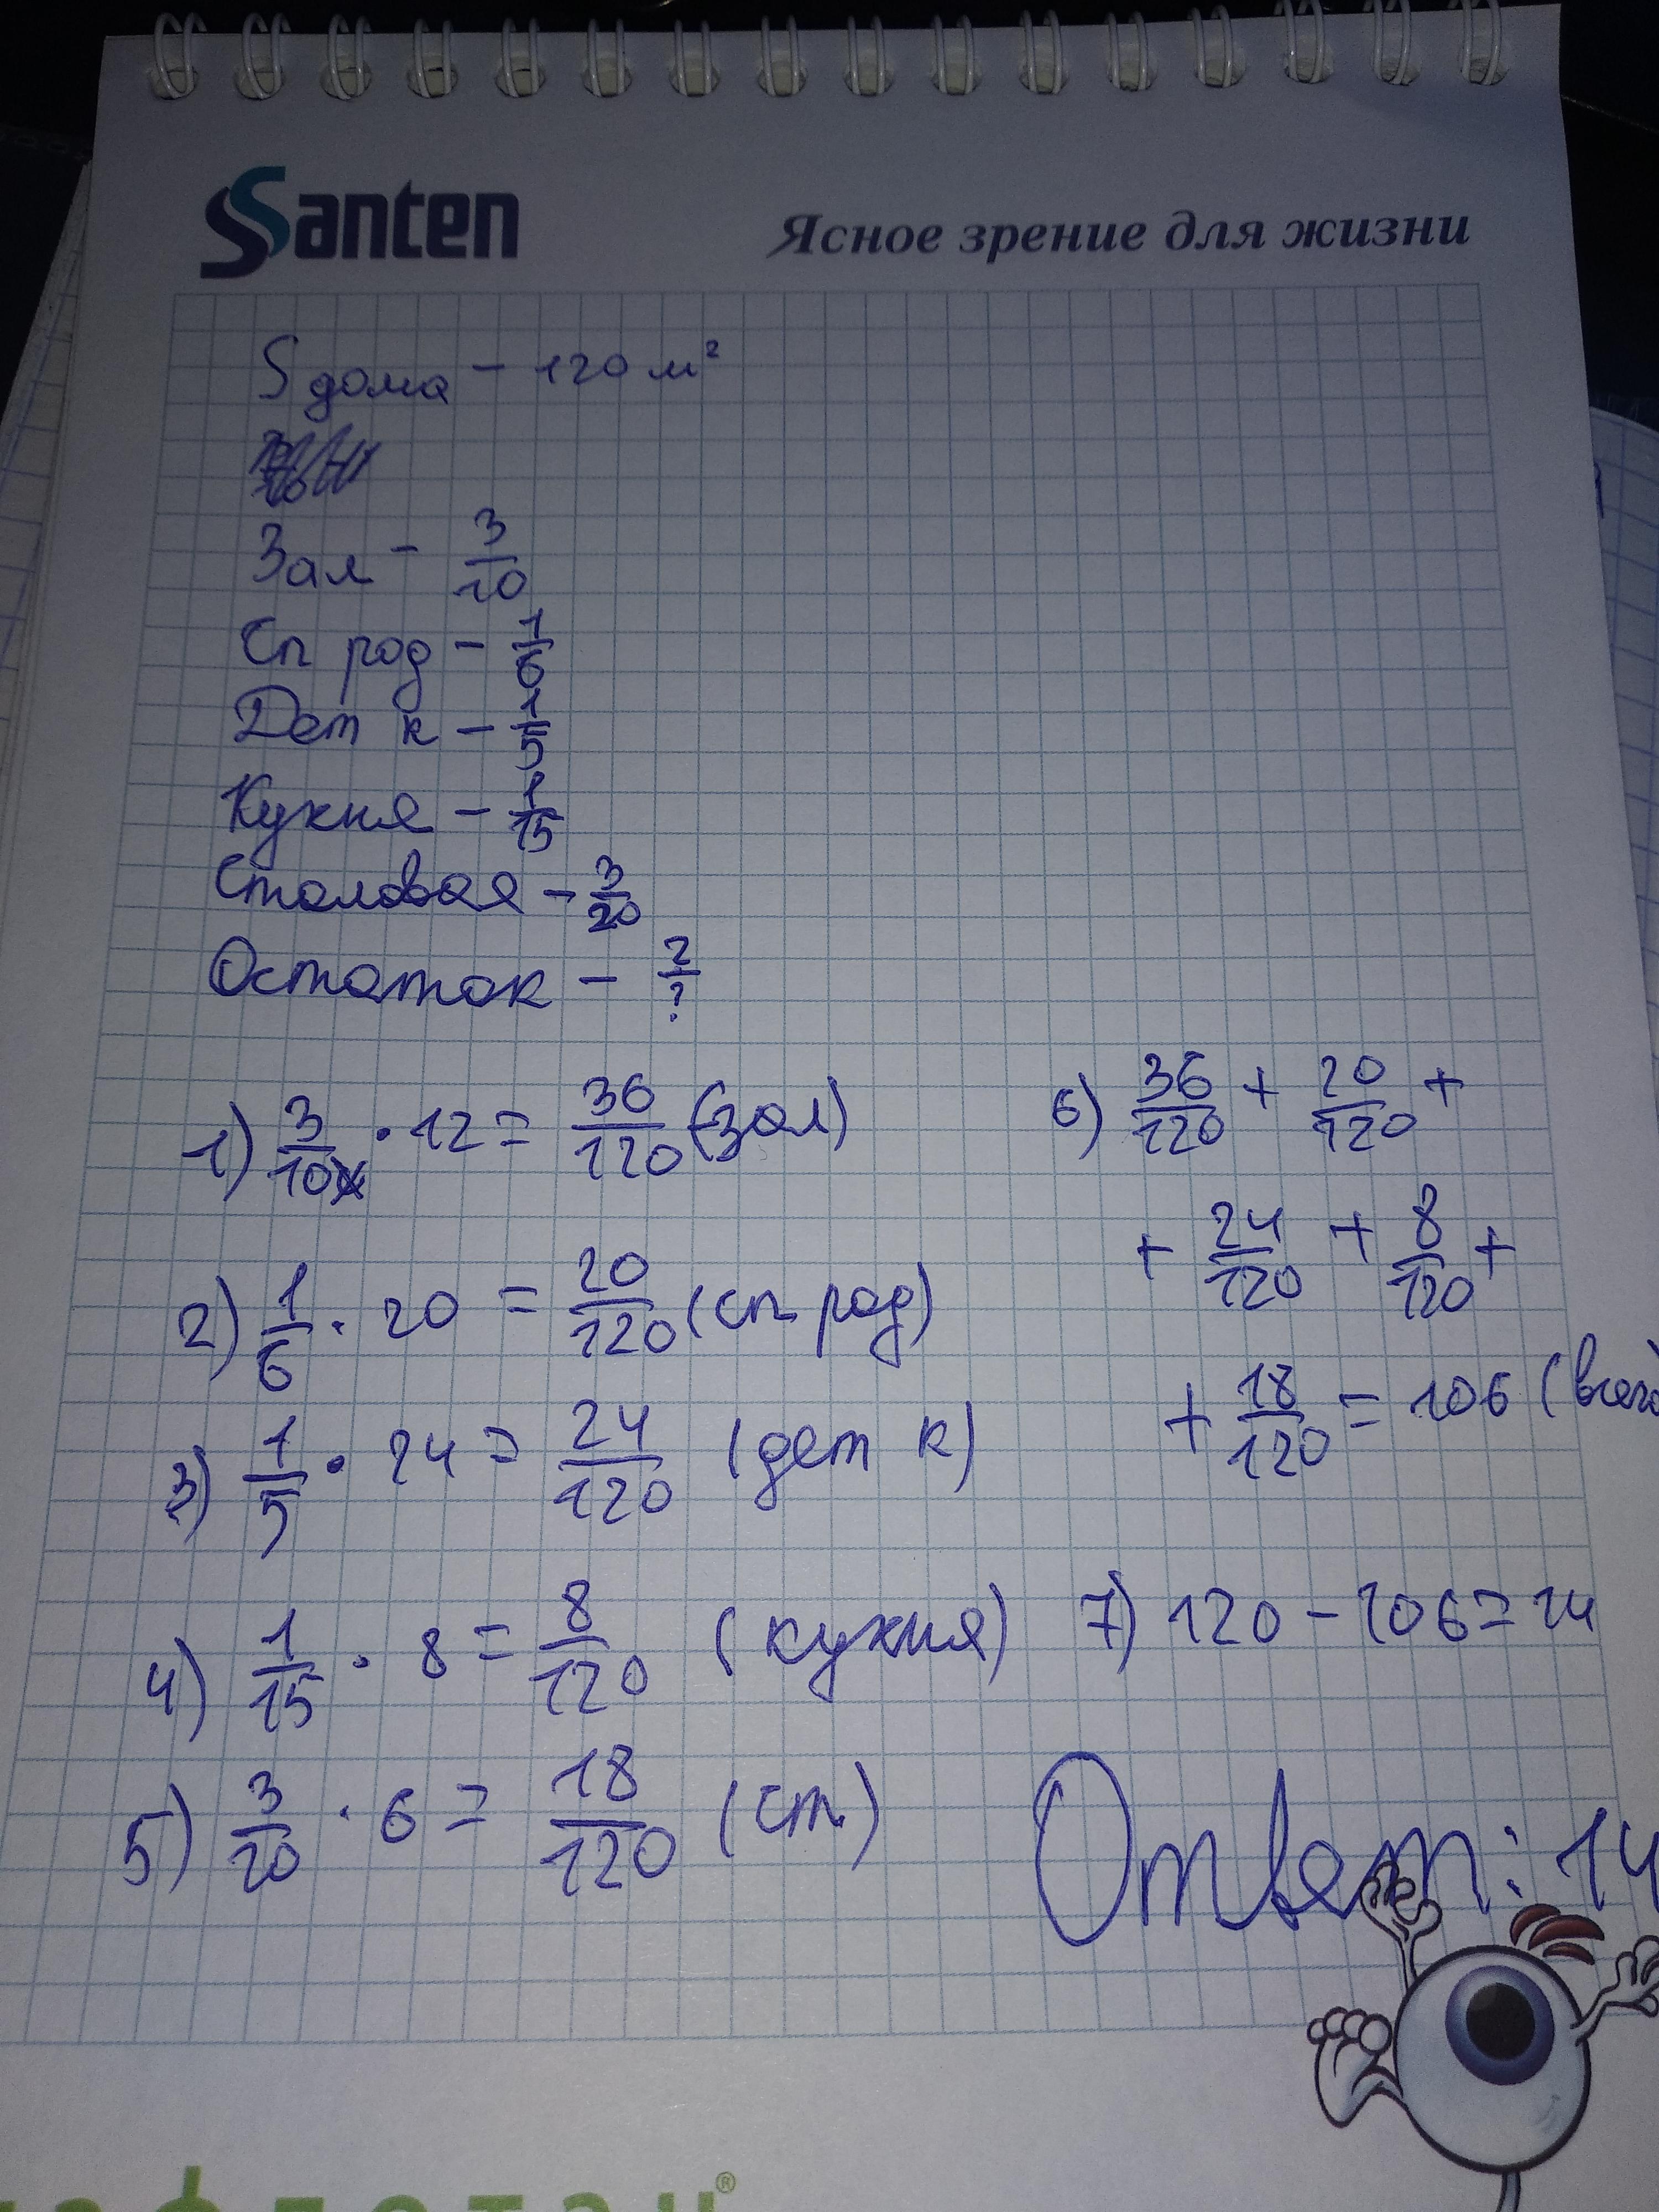 Santen
Ясное зрение для жизни
S дома - 120 м²
Зал - 3/10
Сп род - 1/6
Дет к - 1/5
Кухня - 1/15
Столовая - 3/20
Остаток - ?/?
1) 3/10 · 12 = 36/120 (зал)
2) 1/6 · 20 = 20/120 (сп род)
3) 1/5 · 24 = 24/120 (дет к)
4) 1/15 · 8 = 8/120 (кухня)
5) 3/20 · 6 = 18/120 (ст)
6) 36/120 + 20/120 +
+ 24/120 + 8/120 +
+ 18/120 = 106 (всего)
7) 120 - 106 = 14
Ответ: 14